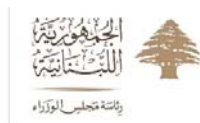 الجمهورية
اللبنانية
رئاسة مجلس الوزراء